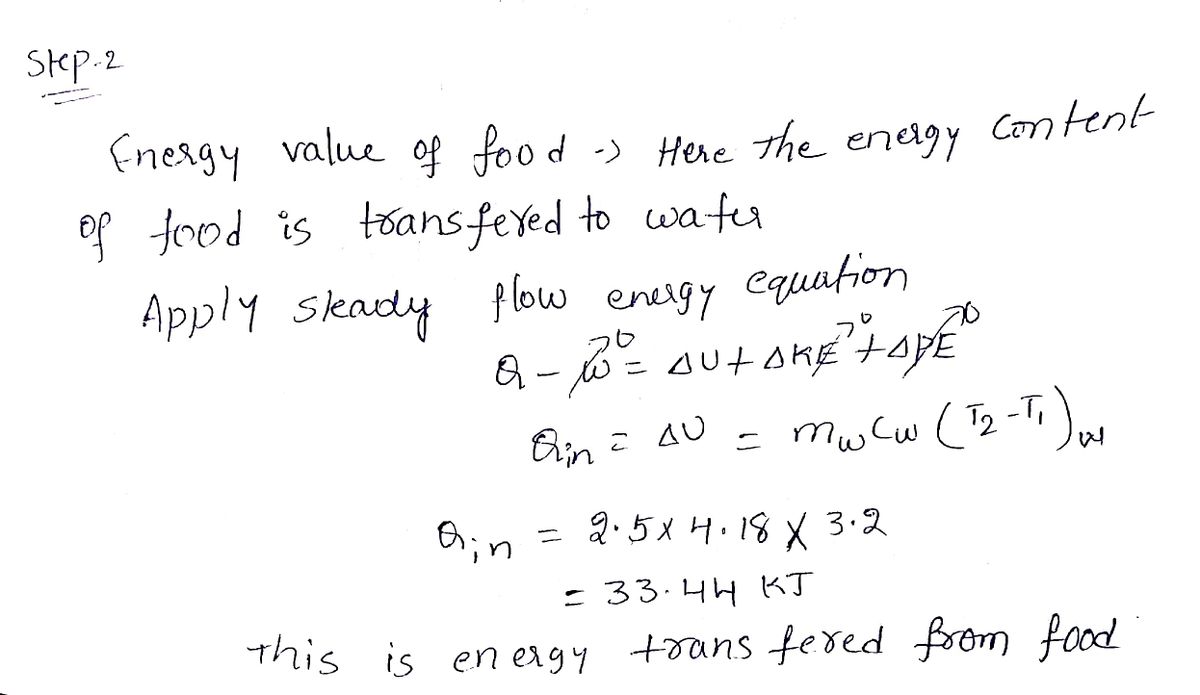 Step-2
Energy value of food -> Here the energy content
of food is transfered to water
Apply steady flow energy equation
Q - W→0 = ΔU + ΔKE→0 + ΔPE→0
Qin = ΔU = mwCw (T2 - T1)w
Qin = 2.5 x 4.18 x 3.2
= 33.44 KJ
this is energy transfered from food